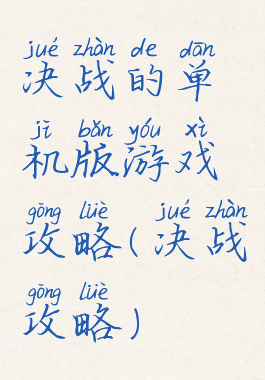 jué zhàn de dān
决战的单
jī bǎn yóu xì
机版游戏
gōng lüè jué zhàn
攻略(决战
gōng lüè
攻略)